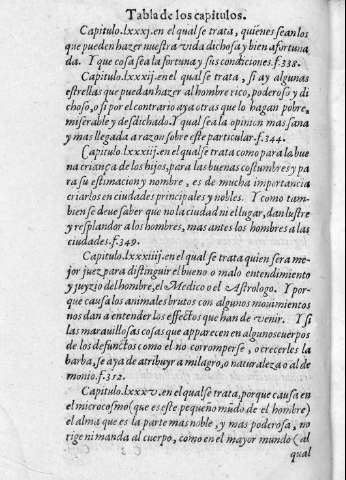 Tabla de los capitulos.
Capitulo.lxxxj.en el qual se trata, quienes sean los
que pueden hazer nuestra vida dichosa y bien afortuna
da. Y que cosa sea la fortuna y sus condiciones.f.338.
Capitulo.lxxxij.en el qual se trata, si ay algunas
estrellas que puedan hazer al hombre rico, poderoso y di
choso, o si por el contrario aya otras que lo hagan pobre,
miserable y desdichado. Y qual sea la opinion mas sana
y mas llegada a razon sobre este particular.f.344.
Capitulo.lxxxiij.en el qual se trata como para la bue
na criança de los hijos, para las buenas costumbres y pa
ra su estimacion y nombre, es de mucha importancia
criarlos en ciudades principales y nobles. Y como tam-
bien se deue saber que no la ciudad ni el lugar, dan lustre
y resplandor a los hombres, mas antes los hombres a las
ciudades.f.349.
Capitulo.lxxxiiij.en el qual se trata quien sera me-
jor juez para distinguir el bueno o malo entendimiento
y juyzio del hombre, el Medico o el Astrologo. Y por-
que causa los animales brutos con algunos mouimientos
nos dan a entender los effectos que han de venir. Y si
las marauillosas cosas que apparecen en algunos cuerpos
de los defunctos como el no corromperse, o crecerles la
barba, se aya de atribuyr a milagro, o naturaleza o al de
monio.f.352.
Capitulo.lxxxv.en el qual se trata, porque causa en
el microcosmo (que es este pequeño mũdo de el hombre)
el alma que es la parte mas noble, y mas poderosa, no
rige ni manda al cuerpo, como en el mayor mundo (al
qual